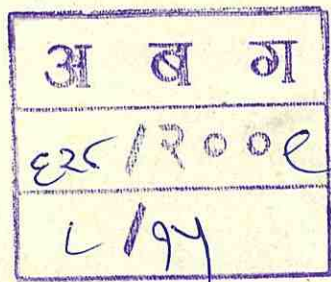 अ ब ग
६२८/२००९
८/१५